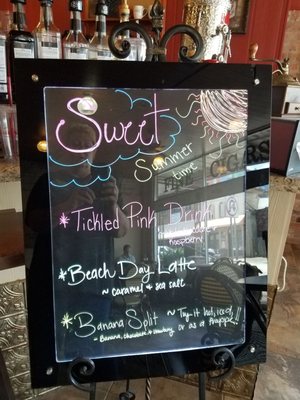 Sweet
Summer
time
* Tickled Pink Drink
Raspberry
* Beach Day Latte
~ caramel & sea salt
* Banana Split ~ Try it hot, iced,
~ Banana, chocolate & strawberry or as a frappe!!